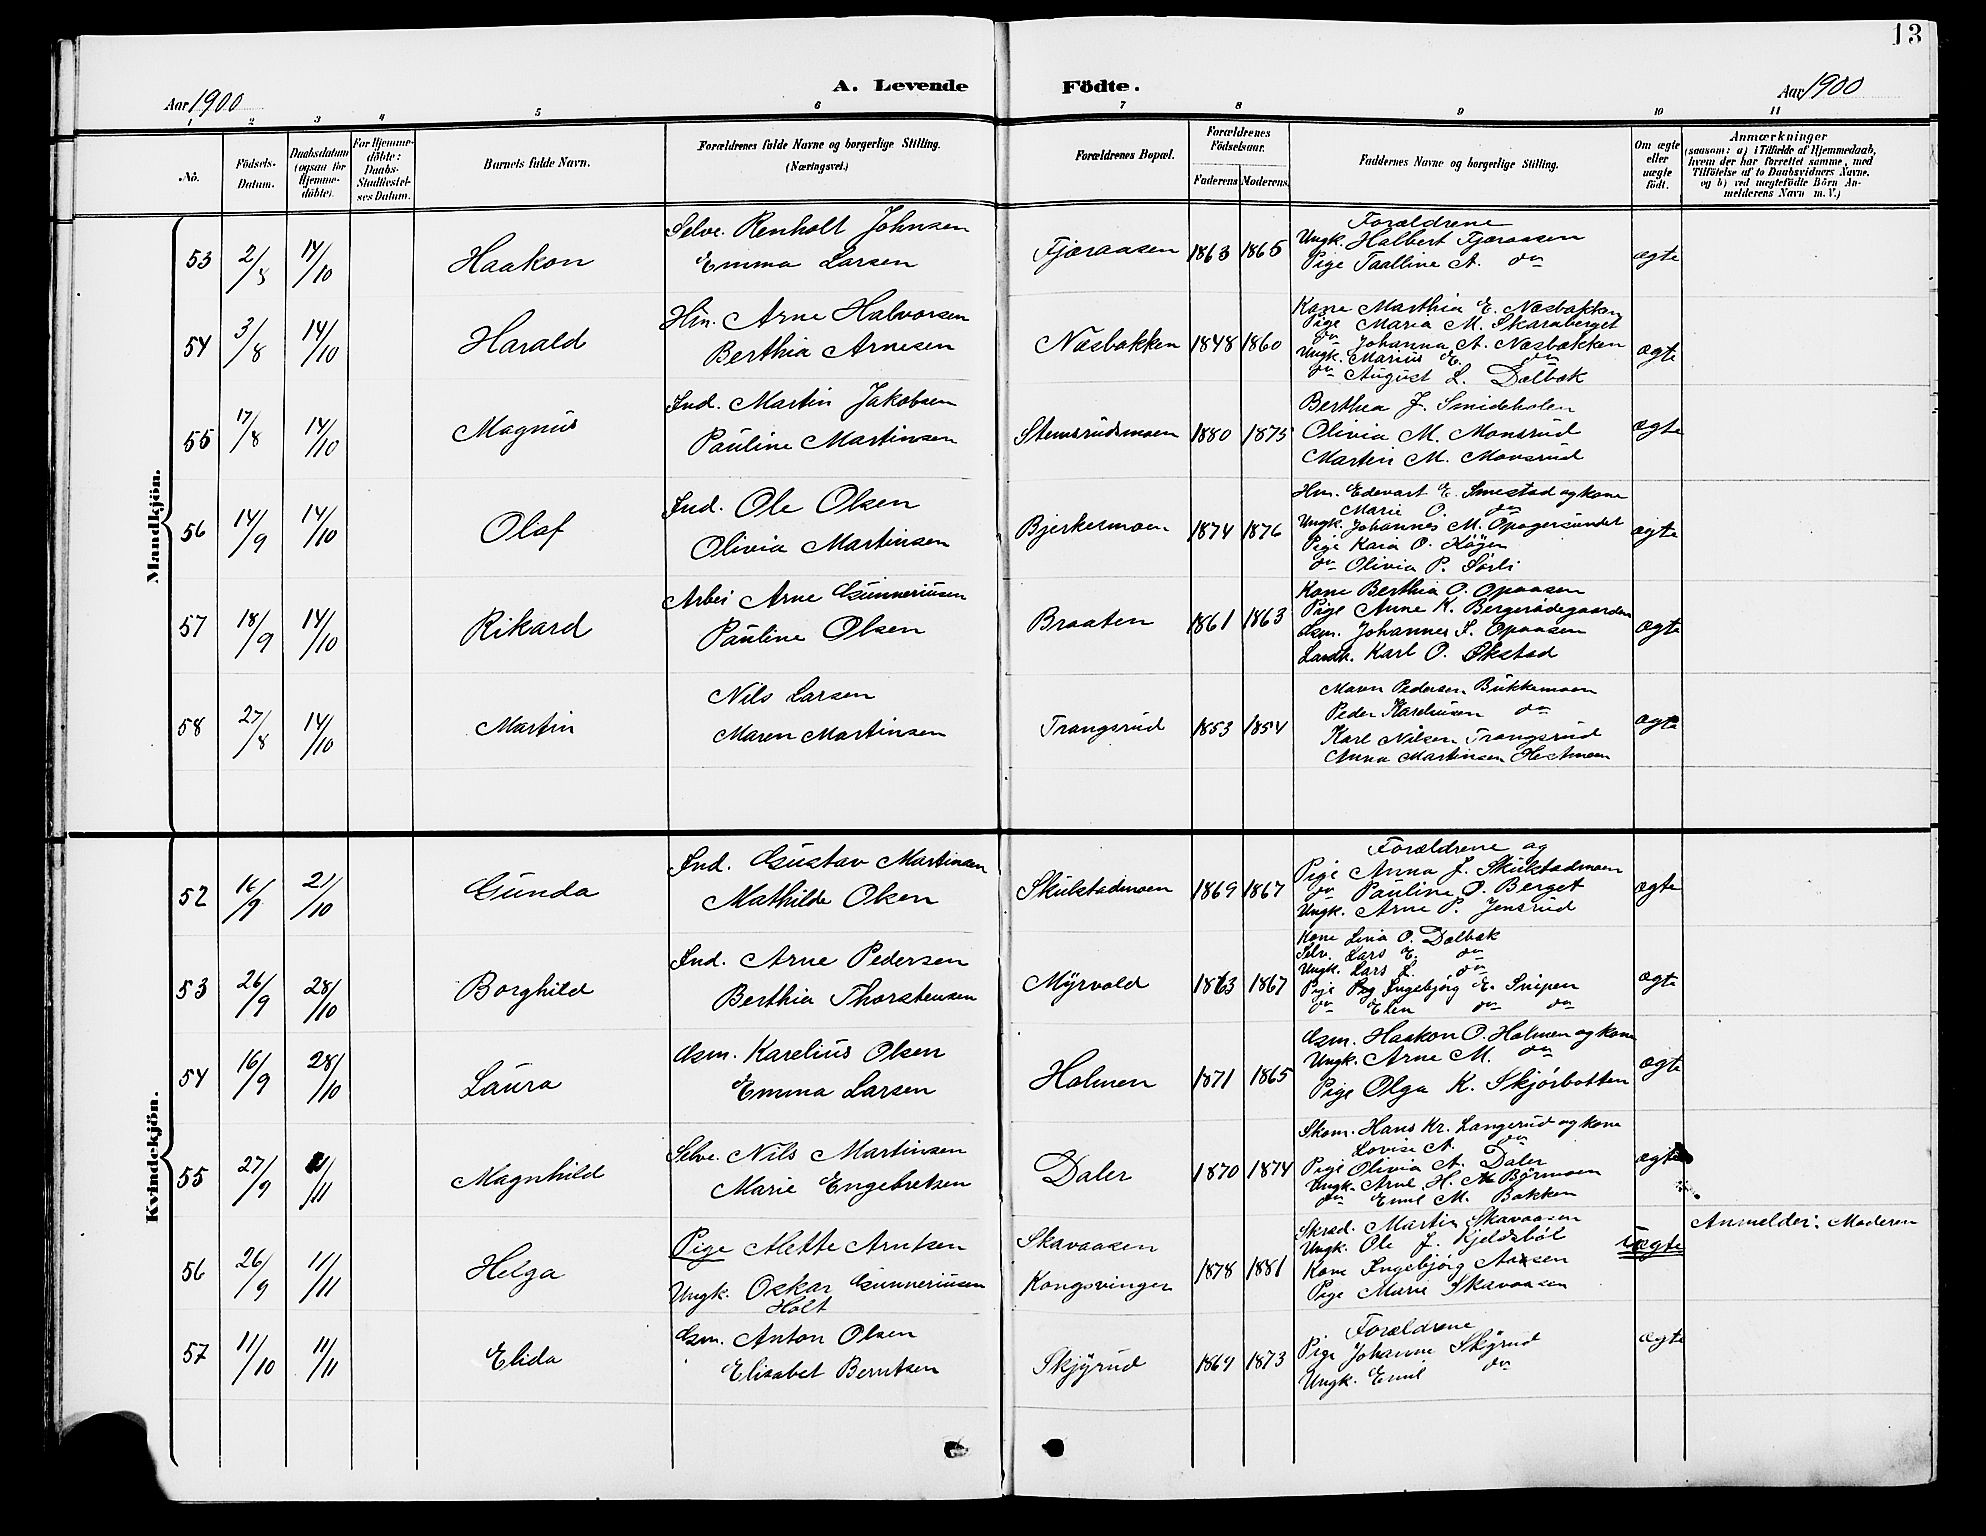 13
Aar 1900
A. Levende Födte.
Aar 1900
1 2 3 4 5 6 7 8 9 10 11
No.
Födsels-Datum.
Daabsdatum (ogsaa for Hjemmedöbte).
For Hjemmedöbte: Daabs-Stadfæstelses Datum.
Barnets fulde Navn.
Forældrenes fulde Navne og borgerlige Stilling. (Næringsvei.)
Forældrenes Bopæl.
Forældrenes Födselsaar.
Faderens. Moderens.
Faddernes Navne og borgerlige Stilling.
Om ægte eller uægte födt.
Anmærkninger (saasom: a) i Tilfælde af Hjemmedaab, hvem der har forrettet samme, med Tilföielse af to Daabsvidners Navne. og b) ved uægtefödte Börn Anmelderens Navn m. V.)
Mandkjön.
53 2/8 14/10 Haakon
Selve. Renholt Johnsen
Emma Larsen
Fjæraasen 1863 1865
Forældrene
Ungk. Halbert Fjæraasen
Pige Taalline A. do
ægte
54 3/8 14/10 Harald
Hm. Arne Halvorsen
Berthia Arnesen
Næsbakken 1848 1860
Kone Marthia E. Næsbakken
Pige Maria M. Skaraberget
do Johanna A. Næsbakken
Ungk. Marius E. do
do August L. Dalbak
ægte
55 17/8 14/10 Magnus
Ind. Martin Jakobsen
Pauline Martinsen
Stemsrudsmoen 1880 1875
Berthea J. Smideholen
Olivia M. Monsrud
Martin M. Monsrud
ægte
56 14/9 14/10 Olaf
Ind. Ole Olsen
Olivia Martinsen
Bjerkermoen 1874 1876
Hm. Edevart E. Smestad og kone
Marie O. do
Ungk. Johannes M. Opagersundet
Pige Kaia O. Høgen
do Olivia P. Sørli
ægte
57 18/9 14/10 Rikard
Arbei Arne Gunneriusen
Pauline Olsen
Braaten 1861 1863
Kone Berthia O. Opaasen
Pige Anne K. Bergerødegaarden
Gsm. Johannes S. Opaasen
Landh. Karl O. Økstad
ægte
58 27/8 14/10 Martin
Nils Larsen
Maren Martinsen
Trangsrud 1853 1854
Maren Pedersen Bukkemoen
Peder Kareliusen do
Karl Nilsen Trangsrud
Anna Martinsen Hestmoen
ægte
Kvindekjön.
52 16/9 21/10 Gunda
Ind. Gustav Martinsen
Mathilde Olsen
Skulstadmoen 1869 1867
Forældrene og
Pige Anna J. Skulstadmoen
do Pauline O. Berget
Ungk. Arne P. Jensrud
ægte
53 26/9 28/10 Borghild
Ind. Arne Pedersen
Berthia Thorstensen
Myrvold 1863 1867
Kone Lina O. Dalbak
Selv. Lars E. do
Ungk. Lars L. do
Pige Ingebjørg E. Snipen
do Elen do do
ægte
54 16/9 28/10 Laura
Gsm. Karelius Olsen
Emma Larsen
Holmen 1871 1865
Gsm. Haakon O. Holmen og kone
Ungk. Arne M. do
Pige Olga K. Skjørbotten
ægte
55 27/9 /11 Magnhild
Selve. Nils Martinsen
Marie Engebretsen
Daler 1870 1874
Skom. Hans Kr. Langerud og kone
Lovise A. do
Pige Olivia A. Daler
Ungk. Arne H. Børmoen
do Emil M. Bakken
ægte
56 26/9 11/11 Helga
Pige Alette Arntsen
Ungk. Oskar Gunneriusen
Holt
Skavaasen
Kongsvinger
1878 1881
Skræd. Martin Skavaasen
Ungk. Ole J. Kjeldsbøl
Kone Ingebjørg Aasen
Pige Marie Skavaasen
uægte
Anmelder: Moderen
57 11/10 11/11 Elida
Gsm. Anton Olsen
Elisabet Berntsen
Skjyrud 1869 1873
Forældrene
Pige Johanne Skyrud
Ungk. Emil do
ægte